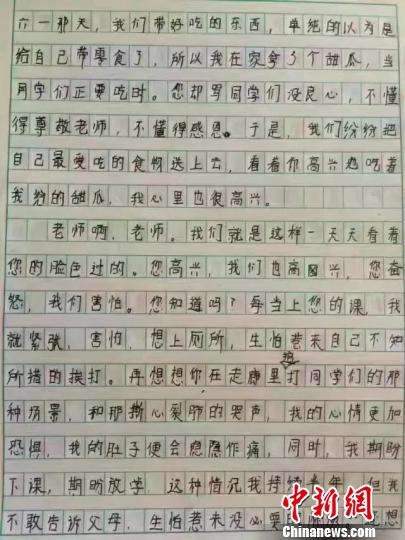 六一那天，我们带好吃的东西，单纯的以为是
给自己带零食了，所以我在家拿了个甜瓜，当
同学们正要吃时。您却骂同学们没良心，不懂
得尊敬老师，不懂得感恩。于是，我们纷纷把
自己最爱吃的食物送上去，看着你高兴地吃着
我给的甜瓜，我心里也很高兴。
老师啊，老师。我们就是这样一天天看着
您的脸色过的。您高兴，我们也高兴，您奋
怒，我们害怕。您知道吗？每当上您的课，我
就紧张，害怕，想上厕所，生怕惹来自己不知
所措的挨打。再想想你在走廊里打同学们的那
种场景，和那撕心裂肺的哭声，我的心情更加
恐惧，我的肚子便会隐隐作痛，同时，我期盼
下课，期盼放学。这种情况我持续半年，但我
不敢告诉父母，生怕惹来没必要
想
中新网
Chinanews.com